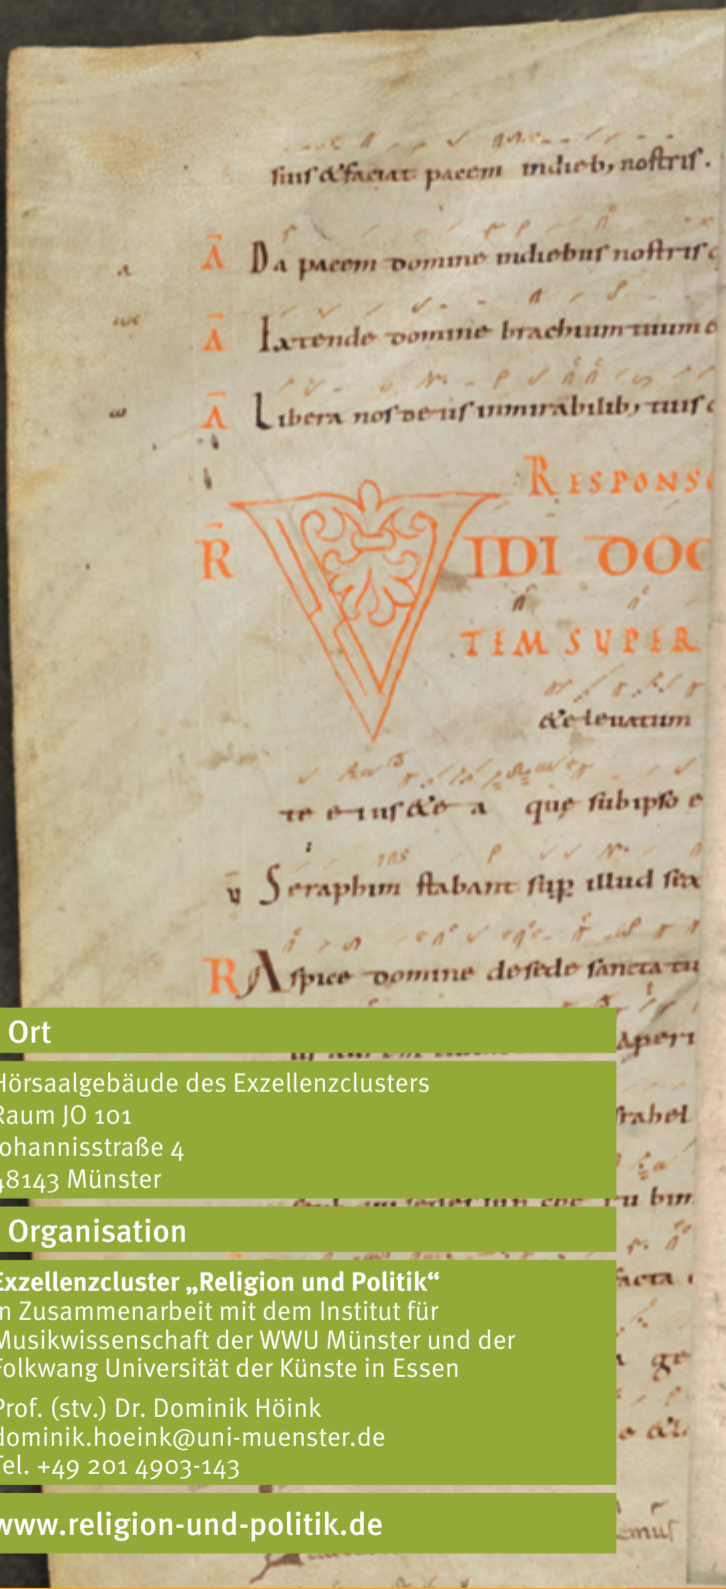 sius & faciat pacem in dieb; nostris.
a Ā Da pacem domine in diebus nostris
Ā Extende domine brachium tuum
Ā Libera nos de us in mirabilib; tuis
RESPONS
R̄ VIDI DO
TEM SUPER
& eleuatum
te eius & e a que sub ipso e
v̄ Seraphim stabant sup illud
R Aspice domine de sede sancta tu
Aperi
rahel
facta
ge
emus
Ort
Hörsaalgebäude des Exzellenzclusters
Raum JO 101
Johannisstraße 4
48143 Münster
Organisation
Exzellenzcluster „Religion und Politik“
in Zusammenarbeit mit dem Institut für
Musikwissenschaft der WWU Münster und der
Folkwang Universität der Künste in Essen
Prof. (stv.) Dr. Dominik Höink
dominik.hoeink@uni-muenster.de
Tel. +49 201 4903-143
www.religion-und-politik.de